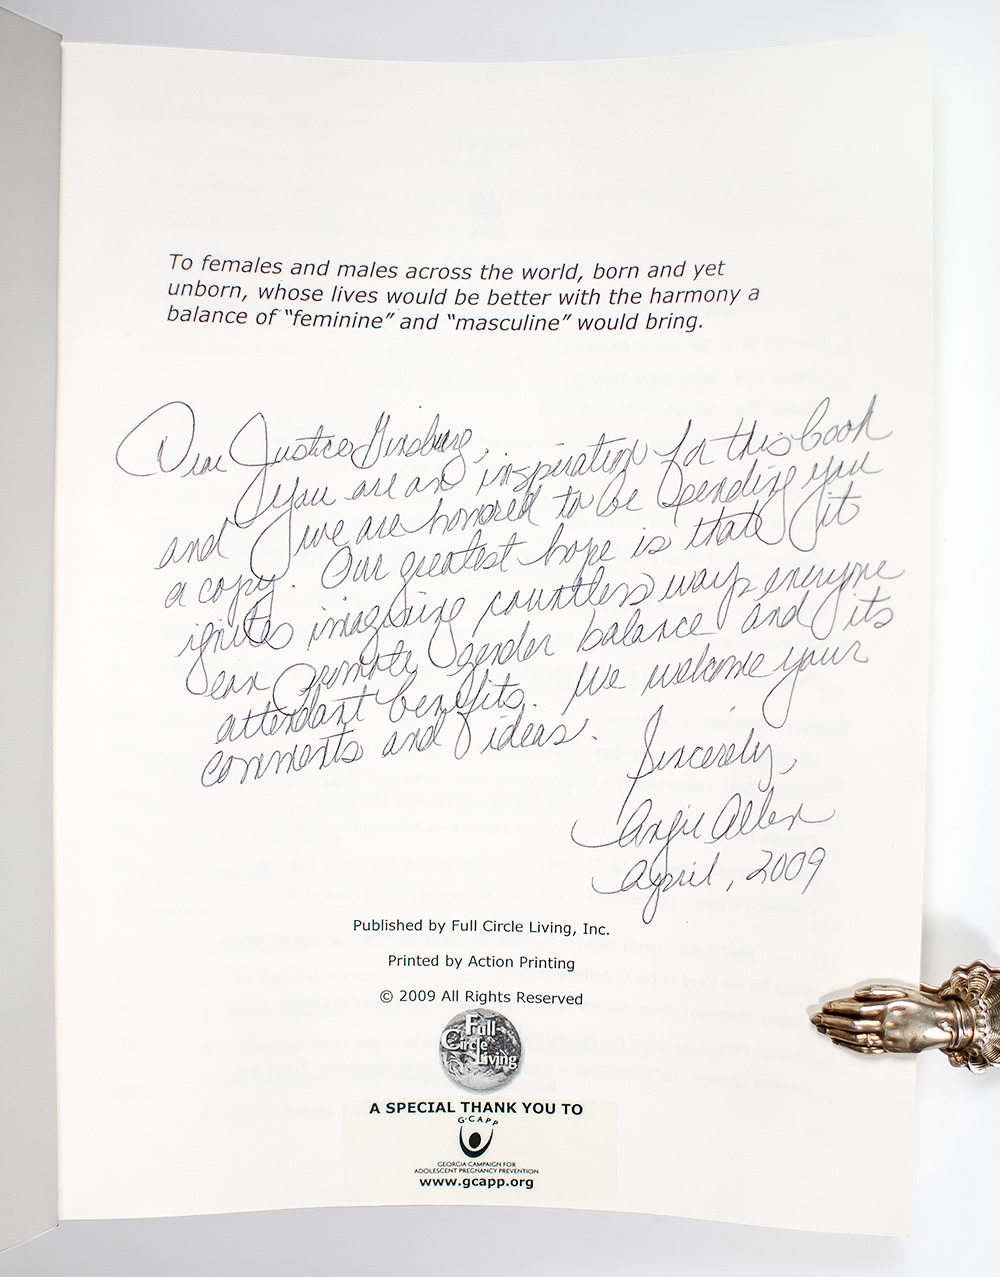 To females and males across the world, born and yet
unborn, whose lives would be better with the harmony a
balance of “feminine” and “masculine” would bring.
Dear Justice Ginsburg,
You are an inspiration for this book
and we are honored to be sending you
a copy. Our greatest hope is that it
ignites imagining countless ways everyone
can promote gender balance and its
attendant benefits. We welcome your
comments and ideas.
Sincerely,
Angie Allen
April, 2009
Published by Full Circle Living, Inc.
Printed by Action Printing
© 2009 All Rights Reserved
Full
Circle
Living
A SPECIAL THANK YOU TO
G·CAPP
GEORGIA CAMPAIGN FOR
ADOLESCENT PREGNANCY PREVENTION
www.gcapp.org